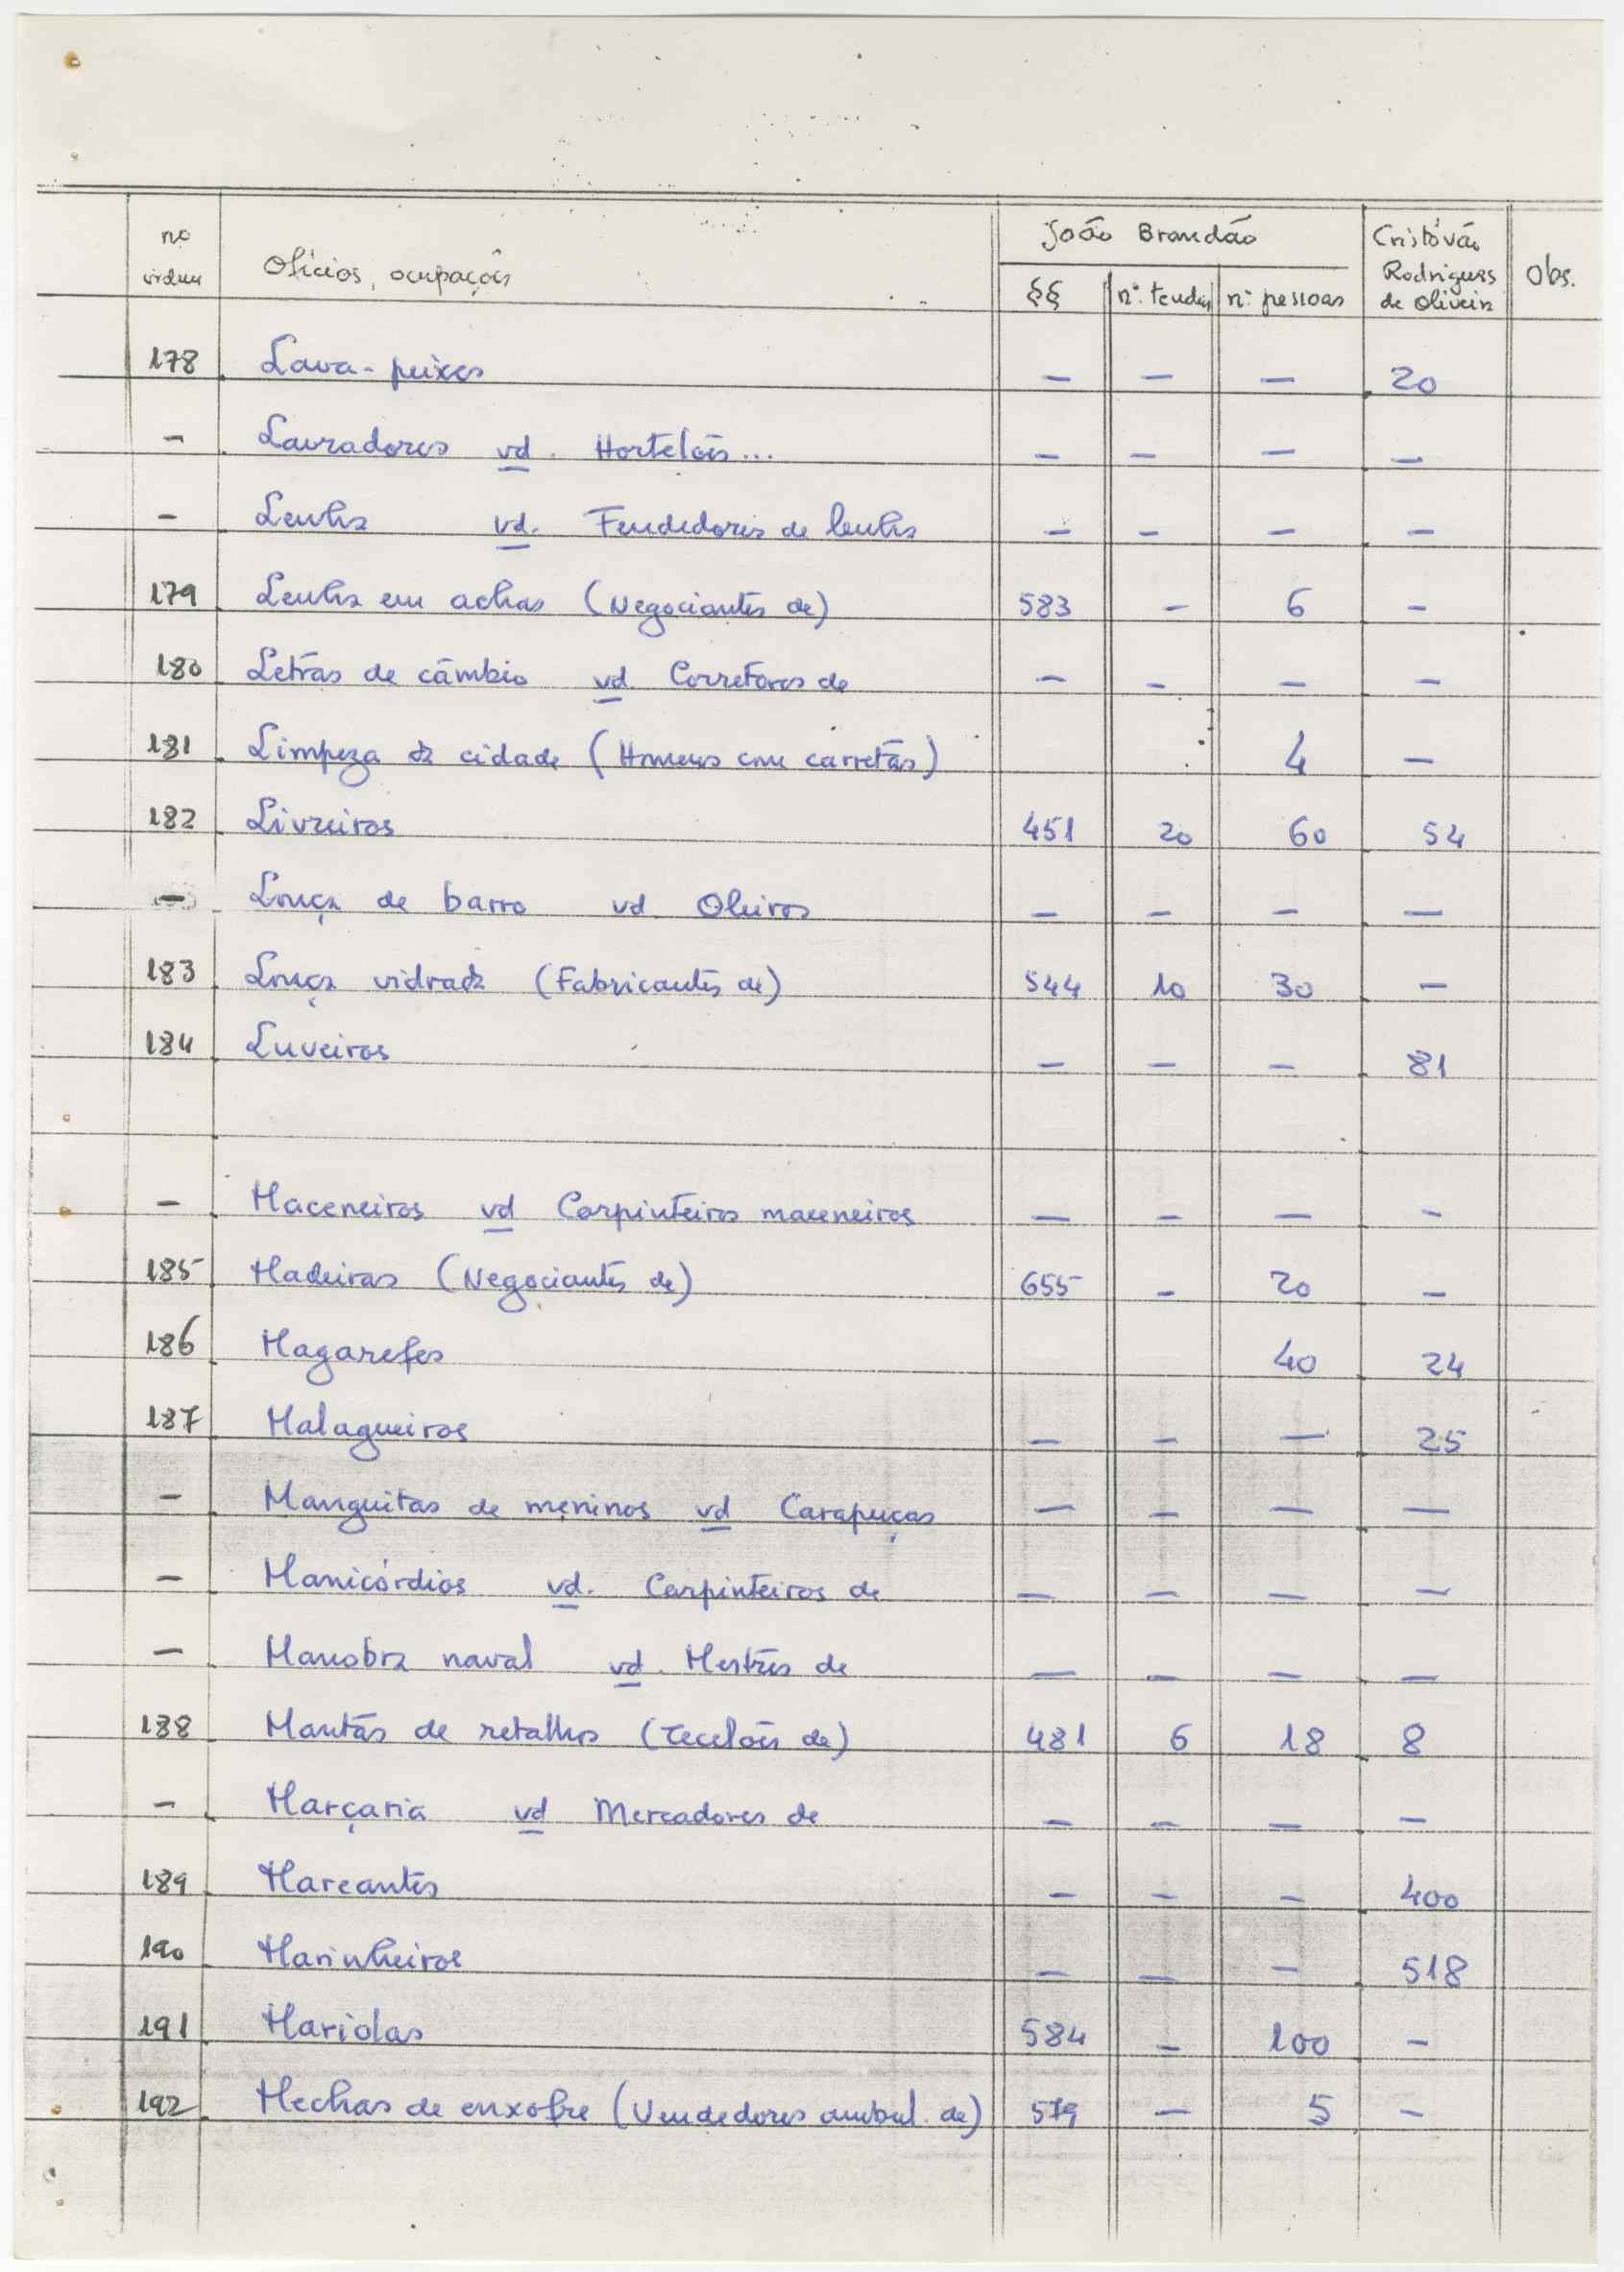 João Brandão
Cristóvão Rodrigues de Oliveira
nº ordem
Ofícios, ocupações
§§
nº. tendas
nº pessoas
Obs.
178 Lava-peixes — — — 20
— Lavradores vd. Hortelões... — — — —
— Lenha vd. Fendedores de lenha — — — —
179 Lenha em achas (Negociantes de) 583 — 6 —
180 Letras de câmbio vd. Corretores de — — — —
181 Limpeza da cidade (Homens com carretas) 4 —
182 Livreiros 451 20 60 54
— Louça de barro vd Oleiros — — — —
183 Louça vidrada (Fabricantes de) 544 10 30 —
184 Luveiros — — — 81
— Maceneiros vd Carpinteiros maceneiros — — — —
185 Madeiras (Negociantes de) 655 — 20 —
186 Magarefes 40 24
187 Malagueiros — — — 25
— Manguitas de meninos vd Carapuças — — — —
— Manicórdios vd. Carpinteiros de — — — —
— Manobra naval vd. Mestres de — — — —
188 Mantas de retalhos (Tecelões de) 481 6 18 8
— Marçaria vd Mercadores de — — — —
189 Mareantes — — — 400
190 Marinheiros — — — 518
191 Mariolas 584 — 100 —
192 Mechas de enxofre (Vendedores ambul. de) 579 — 5 —